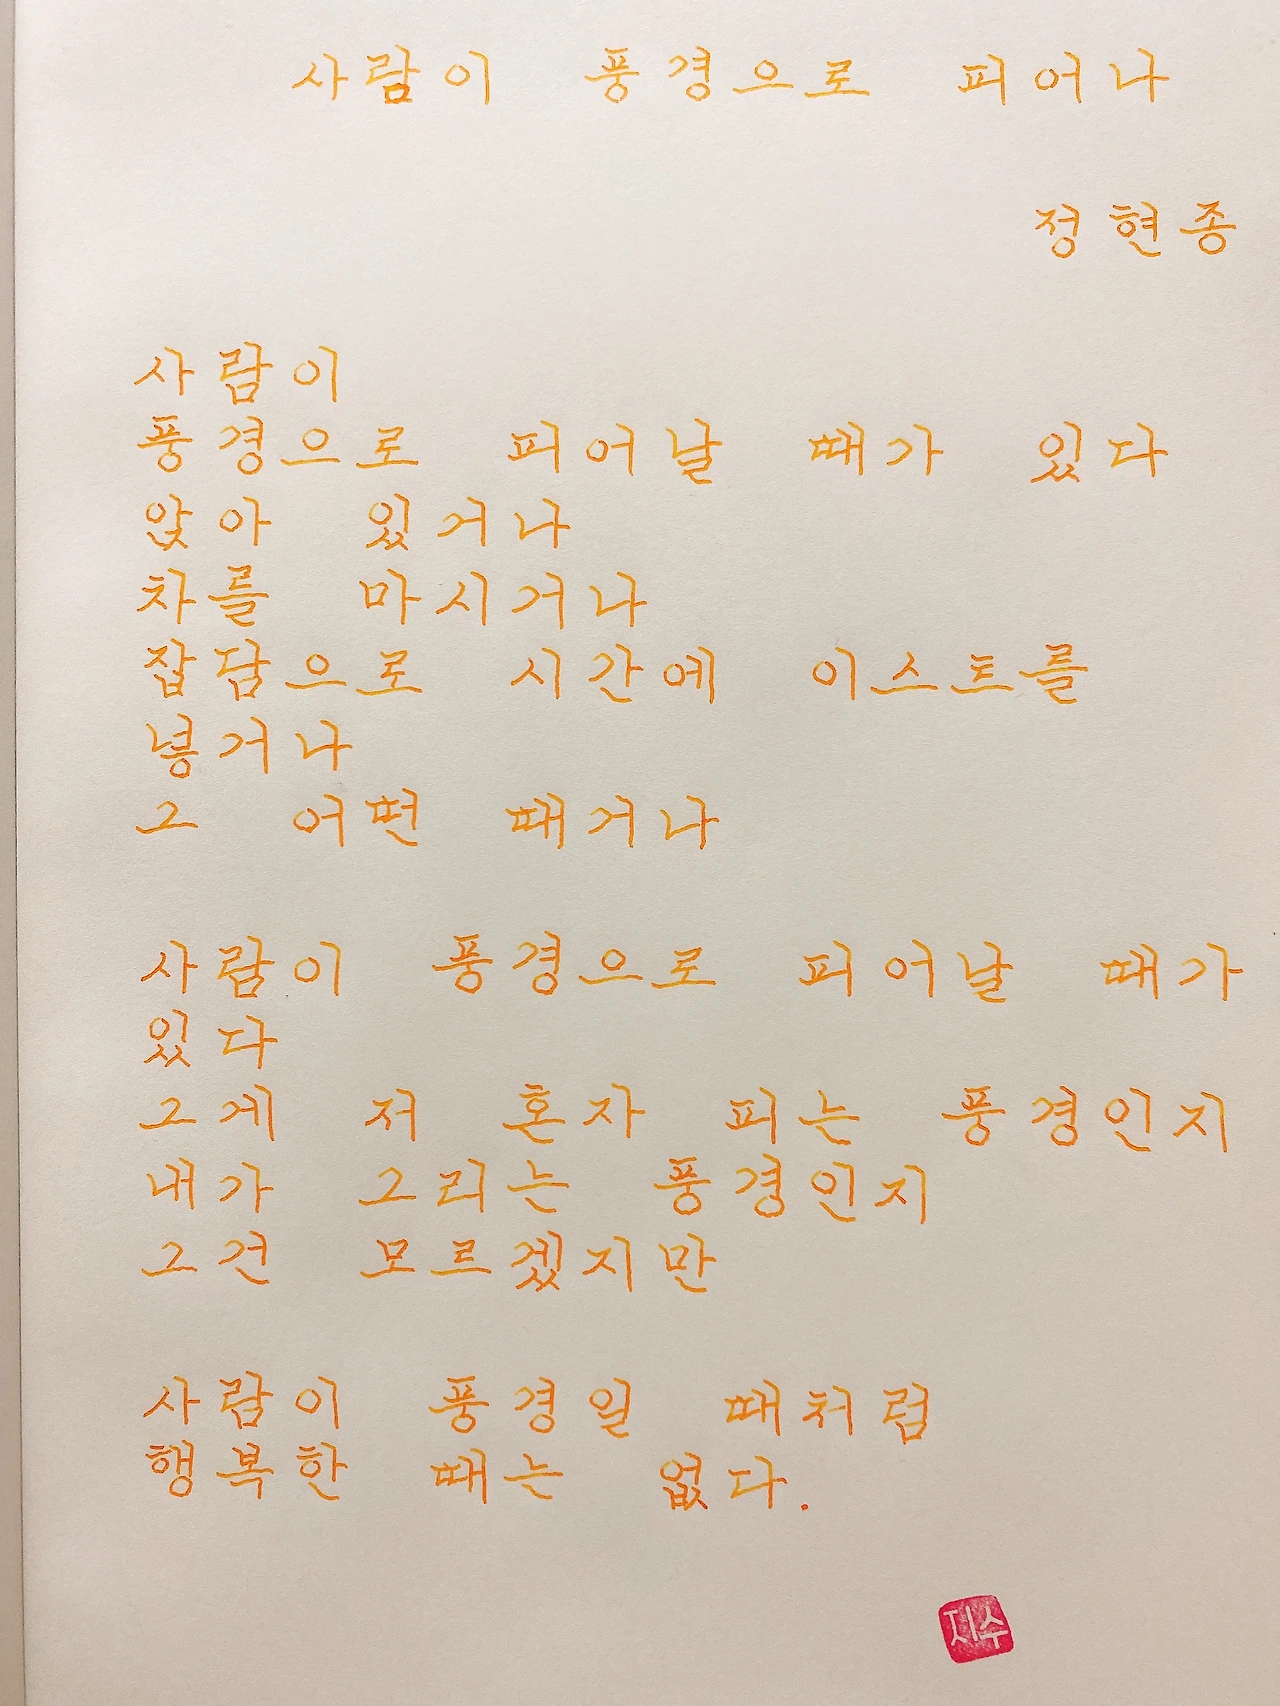 사람이 풍경으로 피어나
정현종
사람이
풍경으로 피어날 때가 있다
앉아 있거나
차를 마시거나
잡담으로 시간에 이스트를
넣거나
그 어떤 때거나
사람이 풍경으로 피어날 때가
있다
그게 저 혼자 피는 풍경인지
내가 그리는 풍경인지
그건 모르겠지만
사람이 풍경일 때처럼
행복한 때는 없다.
지수